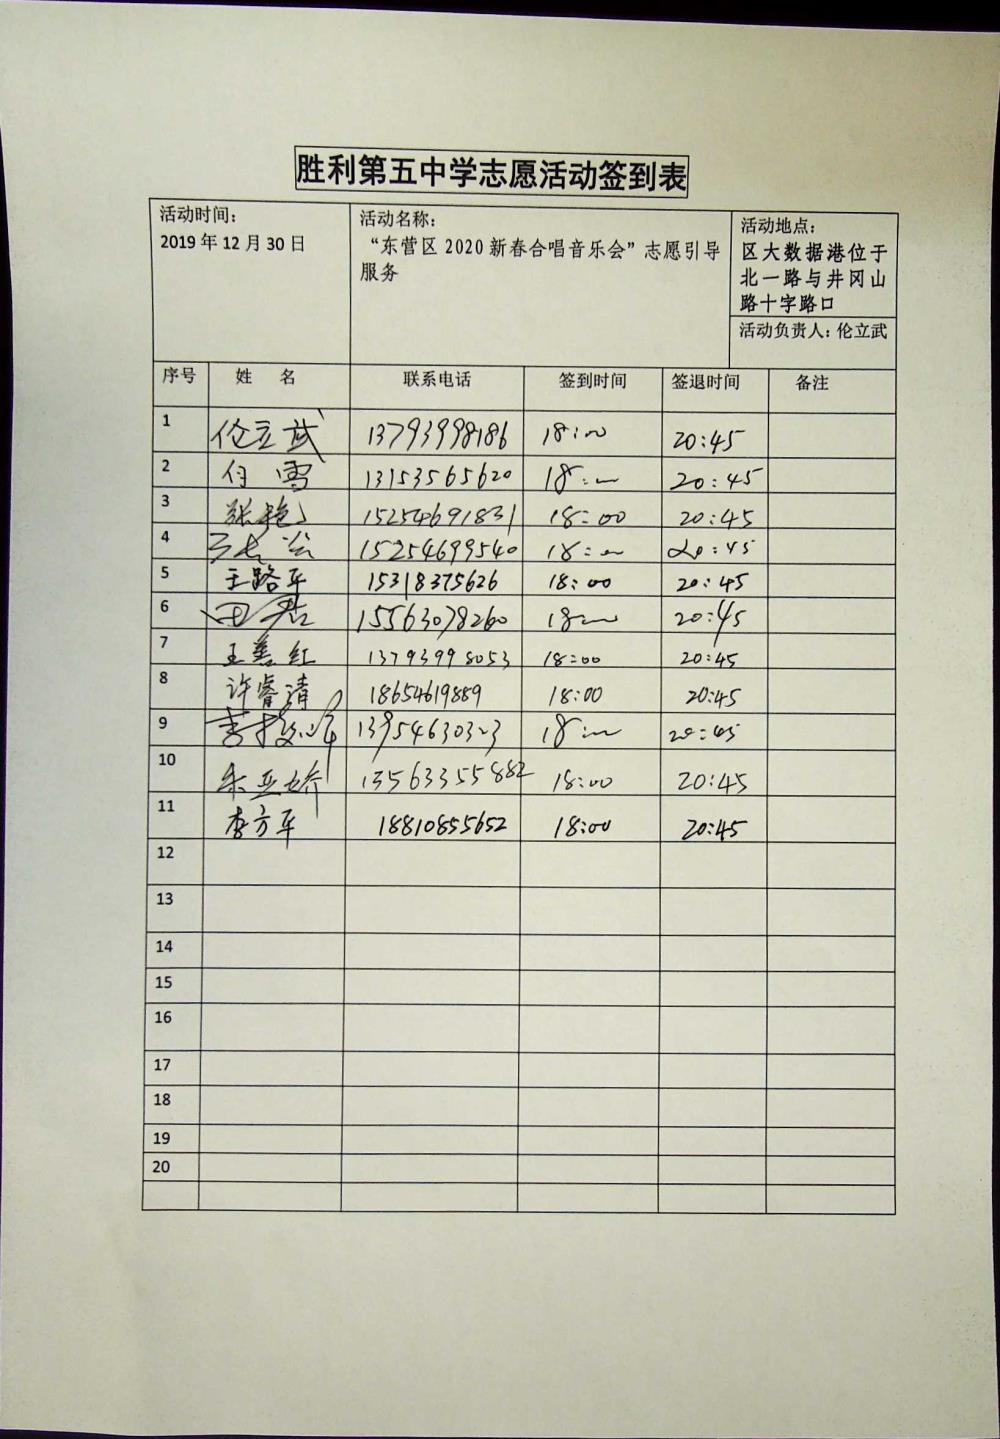 胜利第五中学志愿活动签到表
活动时间：
2019 年 12 月 30 日
活动名称：
“东营区 2020 新春合唱音乐会”志愿引导
服务
活动地点：
区大数据港位于
北一路与井冈山
路十字路口
活动负责人：伦立武
序号 姓 名 联系电话 签到时间 签退时间 备注
1 伦立武 13793998186 18:00 20:45
2 付雪 13153565620 18:00 20:45
3 张艳 15254691831 18:00 20:45
4 15254699540 18:00 20:45
5 王路平 15318375626 18:00 20:45
6 田君 15563078260 18:00 20:45
7 王善红 13793998053 18:00 20:45
8 许睿清 18654619889 18:00 20:45
9 13954630323 18:00 20:45
10 朱亚娇 13563355882 18:00 20:45
11 李方平 18810855652 18:00 20:45
12
13
14
15
16
17
18
19
20